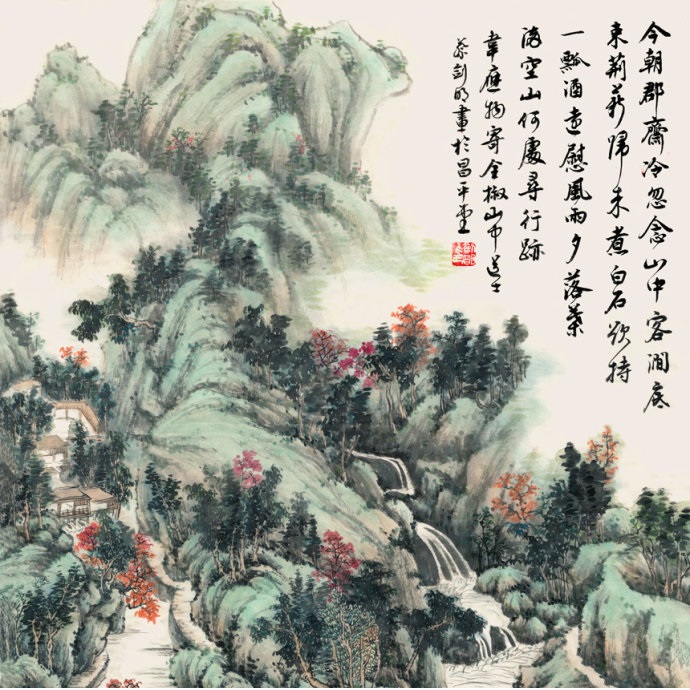 今朝郡齋冷忽念山中客澗底
束荊薪歸來煮白石欲持
一瓢酒遠慰風雨夕落葉
滿空山何處尋行跡
韋應物寄全椒山中道士
蔡劍明畫於昌平堂